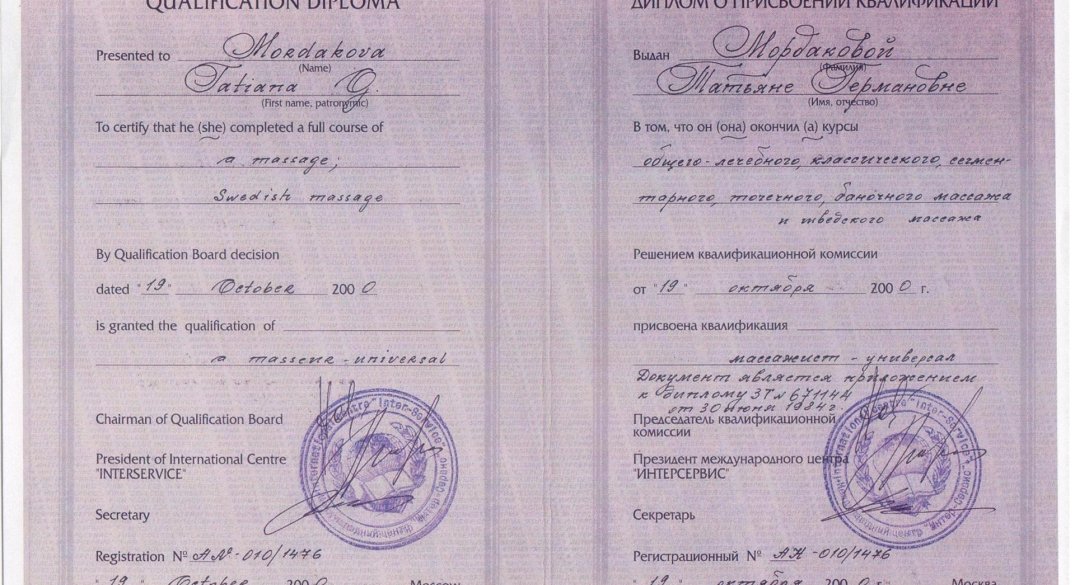 QUALIFICATION DIPLOMA
Presented to Mordakova
(Name)
Tatiana G.
(First name, patronymic)
To certify that he (she) completed a full course of
a massage;
Swedish massage
By Qualification Board decision
dated "19" October 2000
is granted the qualification of
a masseur-universal
Chairman of Qualification Board
President of International Centre
"INTERSERVICE"
Secretary
Registration № АN-010/1476
"19" October 2000 Moscow
ДИПЛОМ О ПРИСВОЕНИИ КВАЛИФИКАЦИИ
Выдан Мордаковой
(Фамилия)
Татьяне Германовне
(Имя, отчество)
В том, что он (она) окончил (а) курсы
общего-лечебного, классического, сегмен-
тарного, точечного, баночного массажа
и шведского массажа
Решением квалификационной комиссии
от "19" октября 2000 г.
присвоена квалификация
массажист - универсал
Документ является приложением
к диплому ЗТ № 671144
от 30 июня 1984г.
Председатель квалификационной
комиссии
Президент международного центра
"ИНТЕРСЕРВИС"
Секретарь
Регистрационный № АН-010/1476
"19" октября 2000 г. Москва